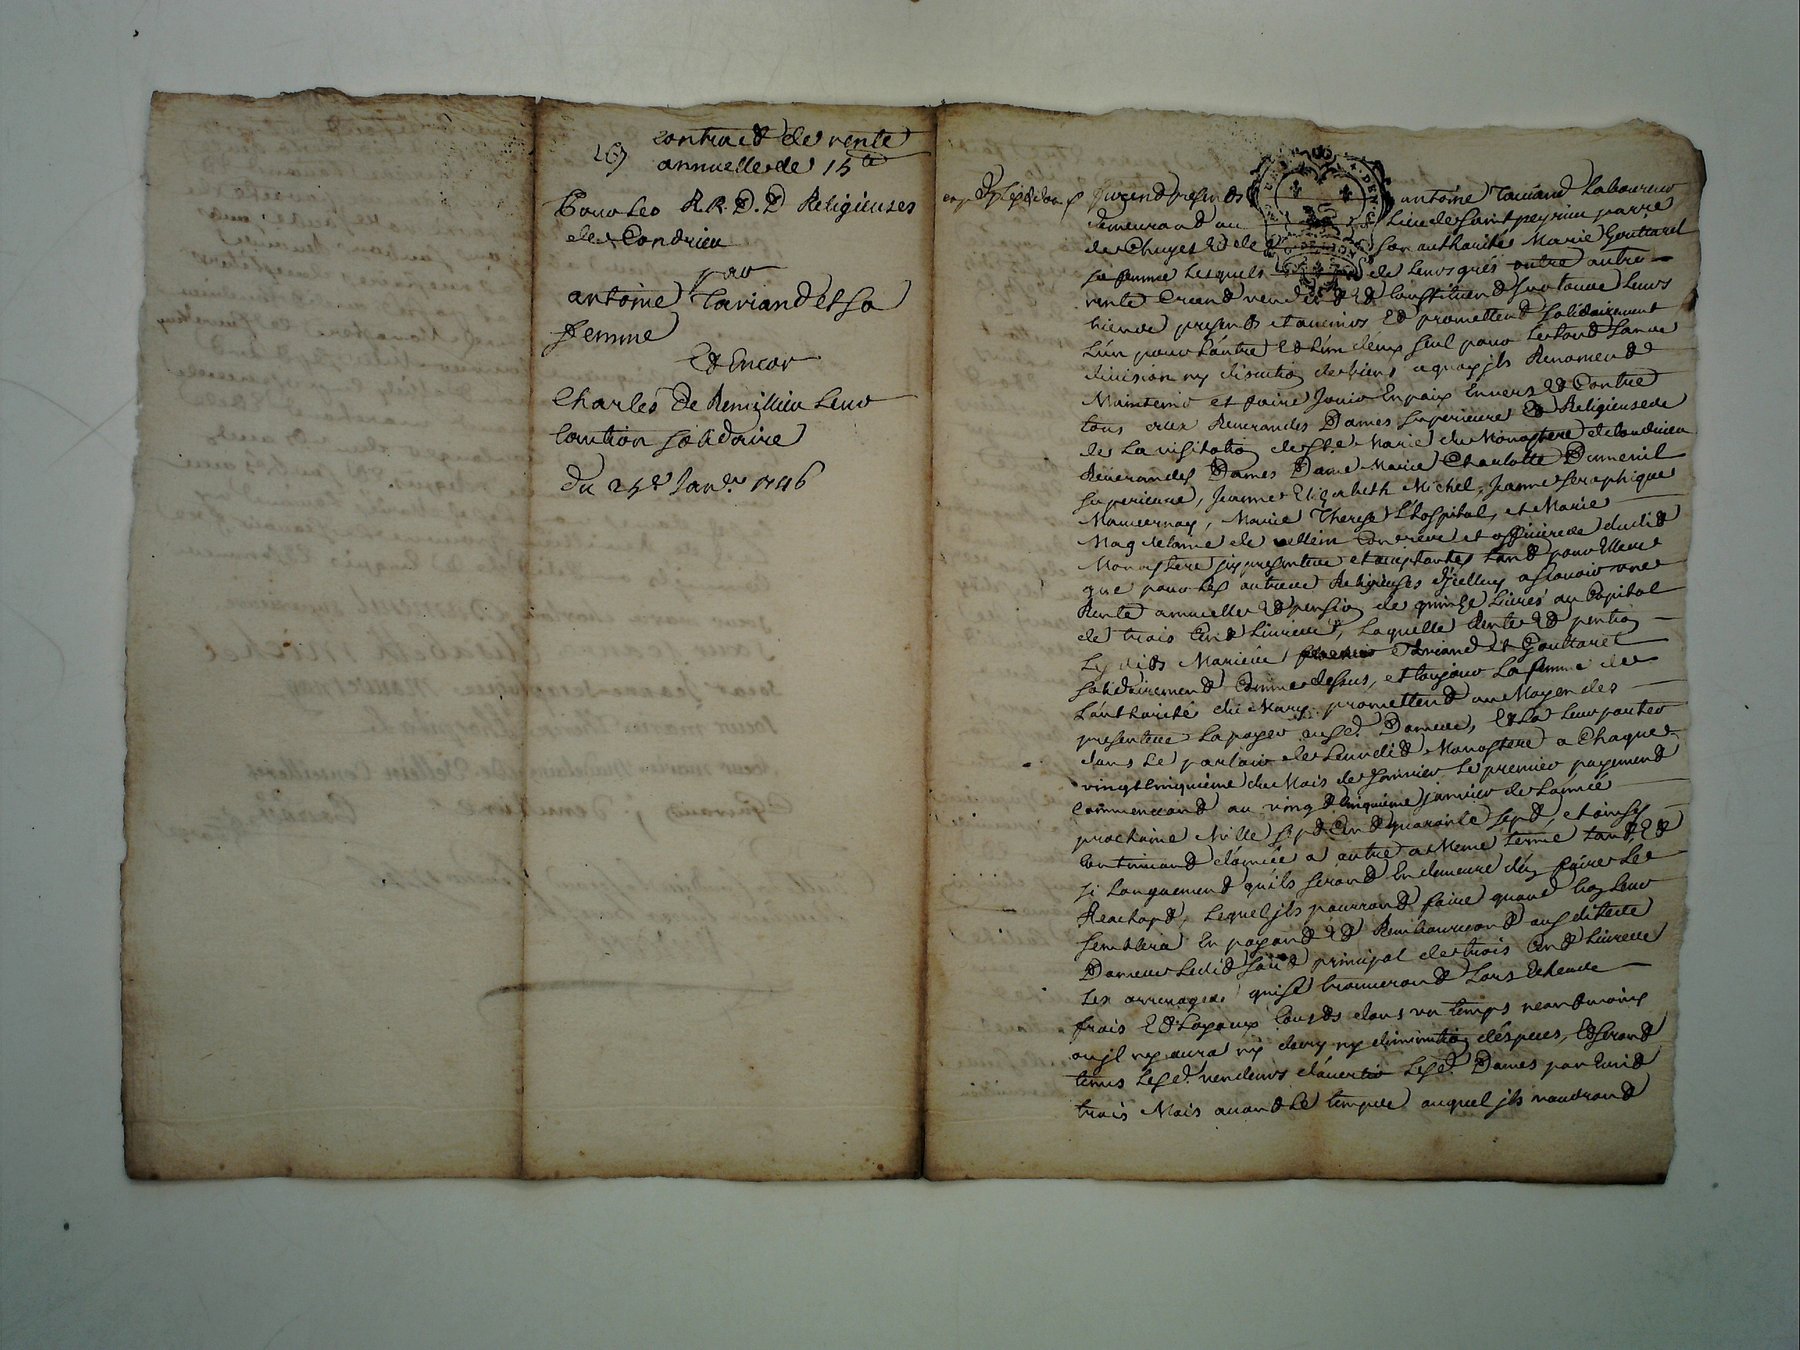 contract de rente
annuelle de 15 ll
Pour Les R.R.D.D Religieuses
de Condrieu
par
antoine Tariand et Sa
femme
Et Encor
Charles De Remillieu Leur
Caution solidaire
Du 25e Janer 1746
furent presents antoine Tariand Laboureur
demeurant au Lieu de Saint peyrieu parre
de Chuyes Et de Son authorité Marie Gouttaret
Sa femme Lesquels de Leurs grés outre autre
rente Créent vendent Et Constituent sur tous Leurs
biens presents et avenirs Et promettent Solidairement
L'un pour L'autre Et L'un d'eux seul pour Le tout sans
division ny discution de biens a quoy ils Renoncent
Maintenir et faire Jouir En paix Envers Et Contre
tous aux Reverandes Dames Superieure Et Religieuses
de La visitation de Ste Marie du Monastere de Condrieu
Reverandes Dames Dame Marie Charlotte Dumenil
Superieure, Jeanne Elizabeth Michel, Jeanne Seraphique
Mauvernay, Marie Therese L'hospital, et Marie
Magdelaine de vellein et officieres dudit
Monastere jcy presentes et acceptantes tant pour Elles
que pour Les autres Religieuses d'jcelluy ascavoir une
Rente annuelle Et pension de quinze Livres au Capital
de trois Cent Livres, Laquelle Rente Et pention
Lesdits Mariés Tariand Et Gouttaret
solidairement Comme dessus, et toujour La femme de
L'authorité du Mary promettent au Moyen des
presentes La payer ausd. Dames, Et La Leur porter
dans Le parloir de Leurdit Monastere a Chaque
vingt Cinquieme du Mois de Janvier Le premier payement
Commencant au vingt Cinquieme janvier de L'année
prochaine Mille sept Cent quarante sept, et ainsy
Continuant d'année a autre a Meme terme tant Et
si Longuement qu'ils seront En demeure d'en faire Le
Reachapt, Lequel jls pourront faire quand bon Leur
semblera En payant Et Remboursant ausdittes
Dames Ledit sort principal de trois Cent Livres
Les arrerages qui se trouveront Lors Echeus
frais Et Loyaux Couts dans un temps neantmoins
ou jl ny aura ny decry ny diminution d'especes, Et seront
tenus Lesd. vendeurs d'avertir Lesd. Dames par Ecrit
trois Mois avant Le temps auquel jls voudront